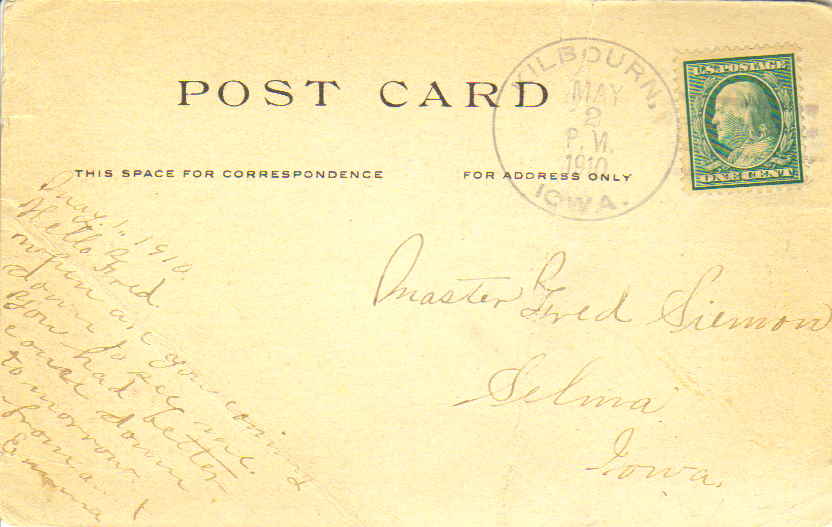 POST CARD
THIS SPACE FOR CORRESPONDENCE
FOR ADDRESS ONLY
KILBOURN,
MAY
2
P.M.
1910
IOWA.
U.S. POSTAGE
ONE CENT
May. 1, 1910.
Hello Fred
when are you coming
down to see me.
you had better
come down
tomorrow
from a
Emma
Master Fred Siemon
Selma
Iowa.